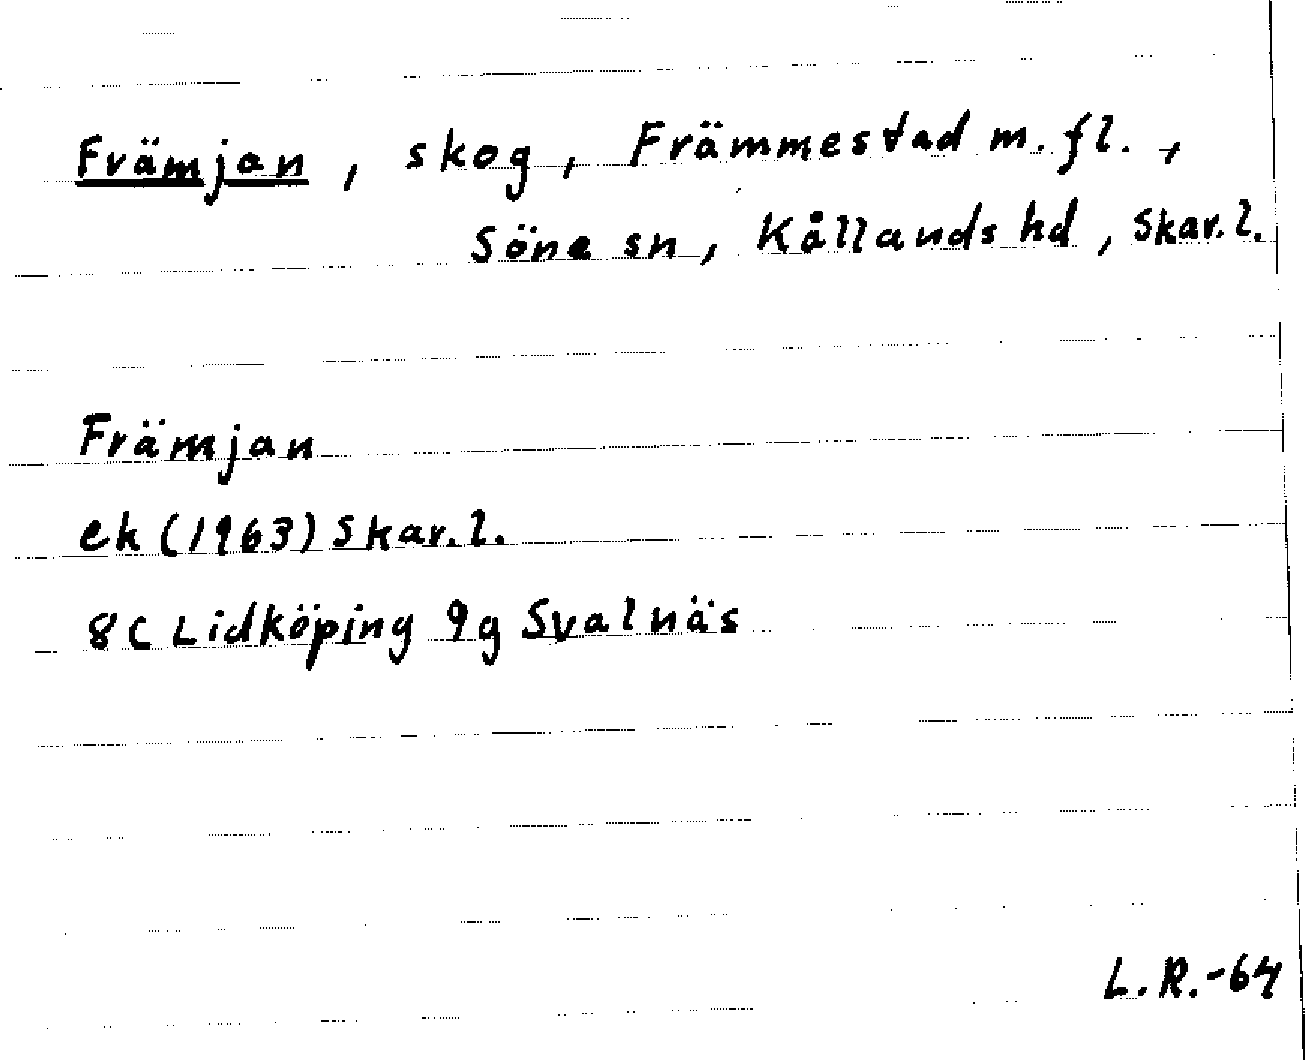 Främjan, skog, Främmestad m.fl.,
Söne sn, Kållands hd, Skar.l.
Främjan
ek (1963) Skar.l.
8C Lidköping 9g Svalnäs
L.R.-64